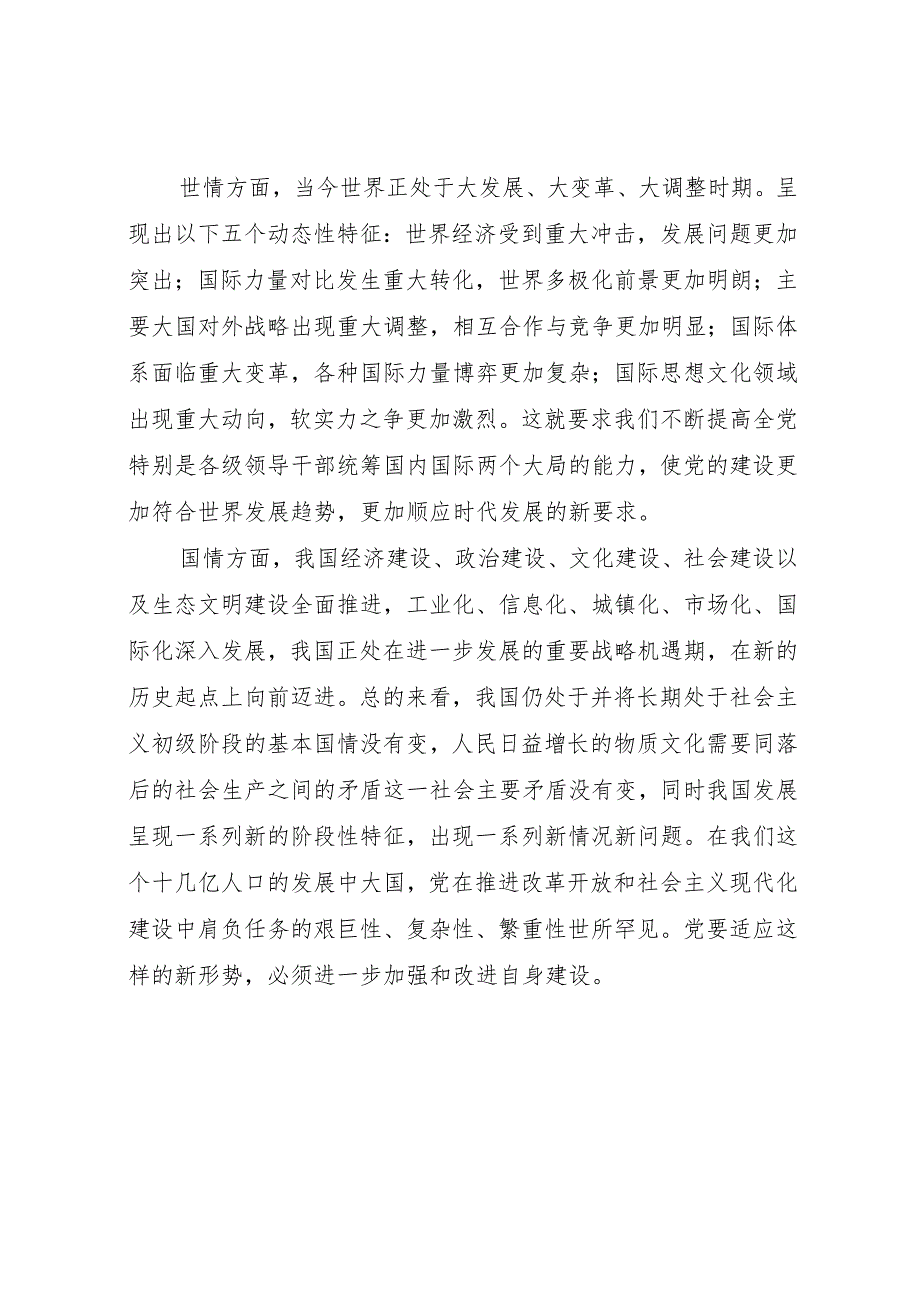 世情方面，当今世界正处于大发展、大变革、大调整时期。呈
现出以下五个动态性特征：世界经济受到重大冲击，发展问题更加
突出；国际力量对比发生重大转化，世界多极化前景更加明朗；主
要大国对外战略出现重大调整，相互合作与竞争更加明显；国际体
系面临重大变革，各种国际力量博弈更加复杂；国际思想文化领域
出现重大动向，软实力之争更加激烈。这就要求我们不断提高全党
特别是各级领导干部统筹国内国际两个大局的能力，使党的建设更
加符合世界发展趋势，更加顺应时代发展的新要求。
国情方面，我国经济建设、政治建设、文化建设、社会建设以
及生态文明建设全面推进，工业化、信息化、城镇化、市场化、国
际化深入发展，我国正处在进一步发展的重要战略机遇期，在新的
历史起点上向前迈进。总的来看，我国仍处于并将长期处于社会主
义初级阶段的基本国情没有变，人民日益增长的物质文化需要同落
后的社会生产之间的矛盾这一社会主要矛盾没有变，同时我国发展
呈现一系列新的阶段性特征，出现一系列新情况新问题。在我们这
个十几亿人口的发展中大国，党在推进改革开放和社会主义现代化
建设中肩负任务的艰巨性、复杂性、繁重性世所罕见。党要适应这
样的新形势，必须进一步加强和改进自身建设。